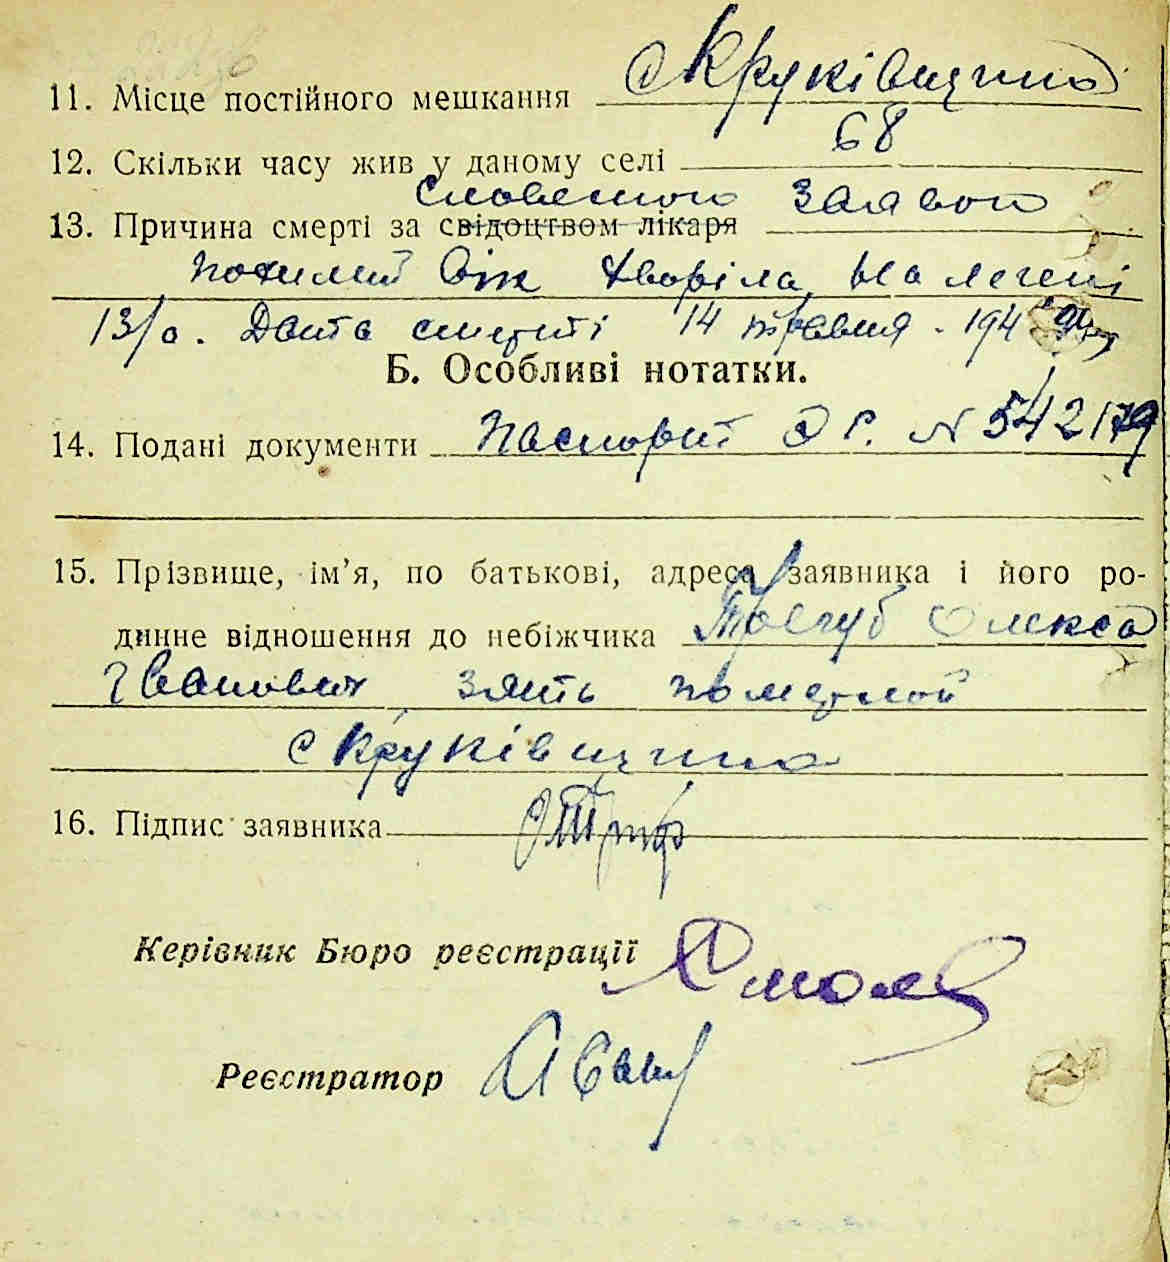 11. Місце постійного мешкання с Круківщина
68
12. Скільки часу жив у даному селі
словесною заявою
13. Причина смерті за свідоцтвом лікаря
похилий вік хворіла на легені
13/о. Дата смерті 14 травня 194
Б. Особливі нотатки.
14. Подані документи Паспорт № 542179
15. Прізвище, ім’я, по батькові, адреса заявника і його ро-
динне відношення до небіжчика Олекса
Іванович зять померлой
с Круківщина
16. Підпис заявника
Керівник Бюро реєстрації
Реєстратор